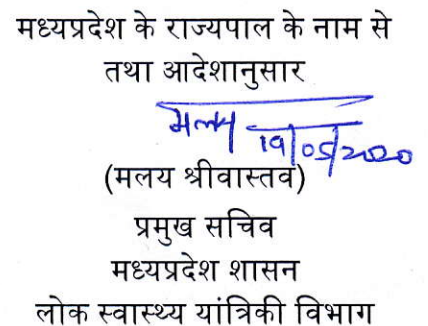 मध्यप्रदेश के राज्यपाल के नाम से
तथा आदेशानुसार
मलय 19/05/2020
(मलय श्रीवास्तव)
प्रमुख सचिव
मध्यप्रदेश शासन
लोक स्वास्थ्य यांत्रिकी विभाग